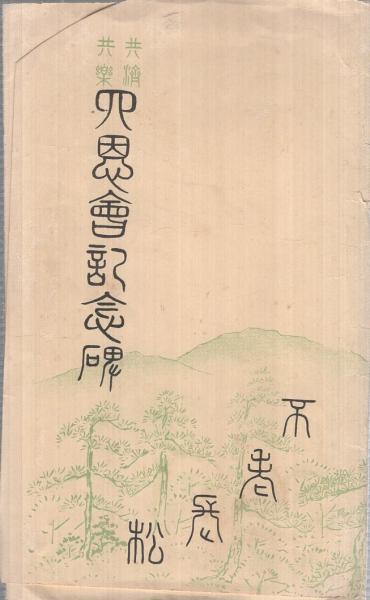 共濟
共樂
四恩會記念碑
不老長松